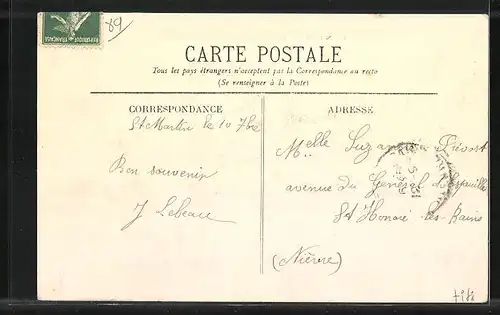 89
REPUBLIQUE FRANÇAISE
CARTE POSTALE
Tous les pays étrangers n'acceptent pas la Correspondance au recto
(Se renseigner à la Poste)
CORRESPONDANCE
St Martin le 10 7bre
Bon souvenir
J Lebeau
ADRESSE
Melle Suzanne Prévost
avenue du Général d'Espeuilles
St Honoré les Bains
(Nièvre)